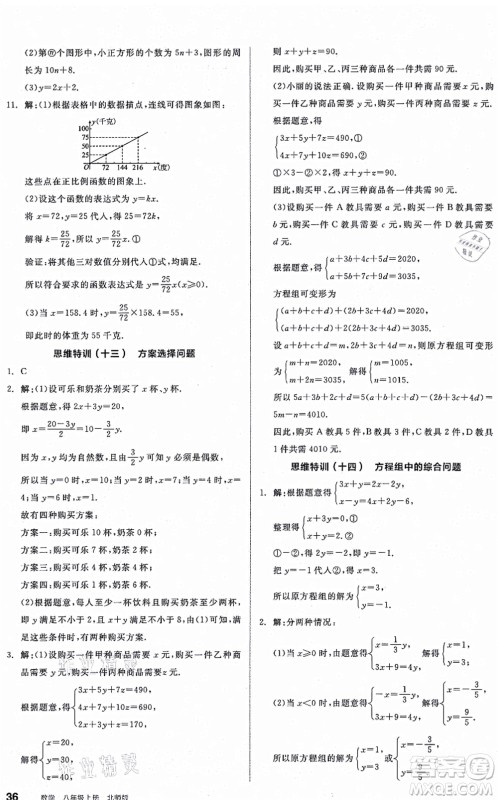 (2)第ⓝ个图形中,小正方形的个数为 5n+3,周长为
10n+8.
(3)y=2x+2.
11. 解:(1)根据表格中的数据描点,连线可得图象如图.
y(千克)
100
75
50
25
0 72 144 216 x(度)
这些点在正比例函数的图象上.
(2)设函数的表达式为 y=kx,
将 x=72,y=25 代入,得 25=72k,
解得 k=25/72,所以 y=25/72x.
验证:将其他三对数值分别代入①式,均满足.
所以符合要求的函数表达式是 y=25/72x(x≥0).
(3)当 x=158.4 时,y=25/72×158.4=55.
即此时的体重为 55 千克.
思维特训(十三) 方案选择问题
1. C
2. 解:(1)设可乐和奶茶分别买了 x 杯、y 杯.
根据题意,得 2x+3y=20,
即 x=(20-3y)/2=10-3/2y.
因为 x,y 均为自然数,所以 y 只能为偶数,
所以当 y=0 时,x=10;当 y=2 时,x=7;
当 y=4 时,x=4;当 y=6 时,x=1.
故有四种购买方案:
方案一:购买可乐 10 杯、奶茶 0 杯;
方案二:购买可乐 7 杯、奶茶 2 杯;
方案三:购买可乐 4 杯、奶茶 4 杯;
方案四:购买可乐 1 杯、奶茶 6 杯.
(2)根据题意,每人至少一杯饮料且奶茶至少二杯时,
即 y 满足不小于 2,且 x+y 满足不小于 8,
所以有两种购买方案.
3. 解:(1)设购买一件甲种商品需 x 元,购买一件乙种
商品需 y 元,购买一件丙种商品需 z 元.
根据题意,得
3x+5y+7z=490,
4x+7y+10z=690,
2x+3y+z=170,
解得 x=20,
y=30,
z=40,
所以 x+y+z=90.
所以购买甲、乙、丙三种商品各一件共需 90 元.
(2)小丽的说法正确.设购买一件甲种商品需 x 元,
购买一件乙种商品需 y 元,购买一件丙种商品需 z 元.
根据题意,得
3x+5y+7z=490,①
4x+7y+10z=690,②
①×3-②×2,得 x+y+z=90.
所以购买甲、乙、丙三种商品各一件共需 90 元.
4. 解:设购买一件 A 教具需 a 元,购买一件 B 教具需
b 元,购买一件 C 教具需 c 元,购买一件 D 教具需 d
元.根据题意,得
a+3b+4c+5d=2020,
a+5b+7c+9d=3035,
方程组可变形为
(a+b+c+d)+(2b+3c+4d)=2020,
(a+b+c+d)+2(2b+3c+4d)=3035,
设 a+b+c+d=m,2b+3c+4d=n,
则有 m+n=2020,
m+2n=3035,
解得 m=1005,
n=1015.
所以 5a+3b+2c+d=5(a+b+c+d)-(2b+3c+4d)=
5m-n=5025-1015=4010.
所以购买 A 教具 5 件,B 教具 3 件,C 教具 2 件,
D 教具 1 件共需 4010 元.
思维特训(十四) 方程组中的综合问题
1. 解:根据题意得
3x+4y=2x-2y,
2x+3y=x-y-2,
整理得 x+6y=0,①
x+4y=-2,②
①-②,得 2y=2,即 y=1.
把 y=1 代入②,得 x=
所以原方程组的解为
y=1.
2. 解:分两种情况:
(1)当 x≥0 时,
3x+9=4y,
解得
y=3;
(2)当 x<0 时,
3x+9=4y,
解得
所以原方程组的解为
y=3
36 数学 八年级上册 北师版